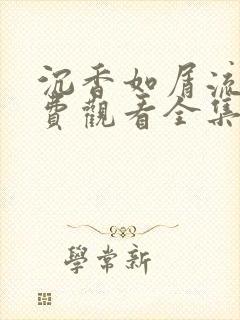 沉香如屑流
費觀看全集
學常新